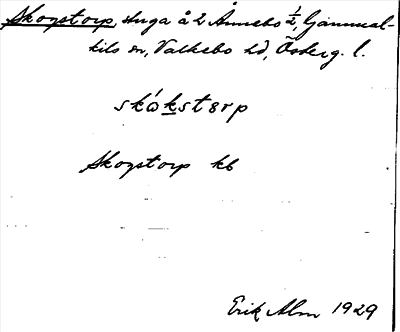 Skogstorp, stuga å 2 Ånnebo 1/2, Gammal-
kils sn, Valkebo hd, Österg. l.
skógkstorp
Skogstorp kb
Erik Alm 1929